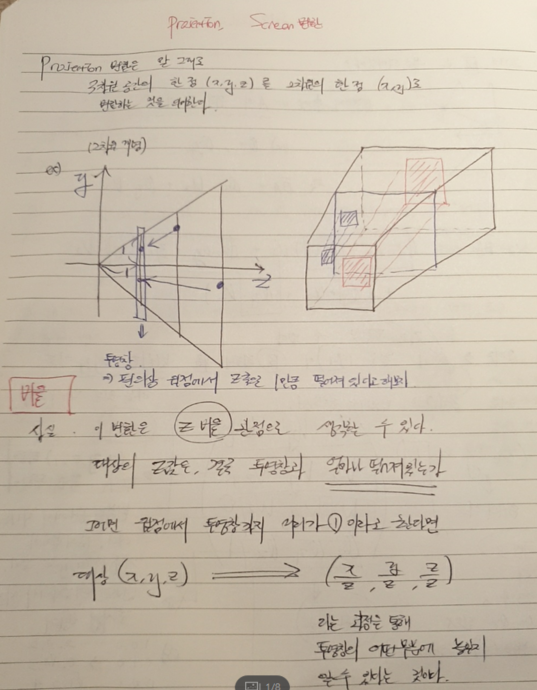 Projection Screen 변환
Projection 변환은 말 그대로
3차원 공간의 한 점 (x,y,z) 를 2차원의 한 점 (x,y)로
변환하는 것을 의미한다.
(2차원 개념)
ex)
y
1
1
z
투영창
⇒ 편의상 시점에서 z축으로 1만큼 떨어져 있다고 하자
비율
사실 이 변환은 z 비율 한정으로 생각할 수 있다.
대상의 z값은, 결국 투영창과 얼마나 떨어져있는가
그러면 시점에서 투영창까지 거리가 ① 이라고 한다면
대상 (x, y, z) ⟹ (x/z, y/z, z/z)
라는 과정을 통해
투영창의 어떤 부분에 놓일지
알 수 있다는 것이다.
1/8